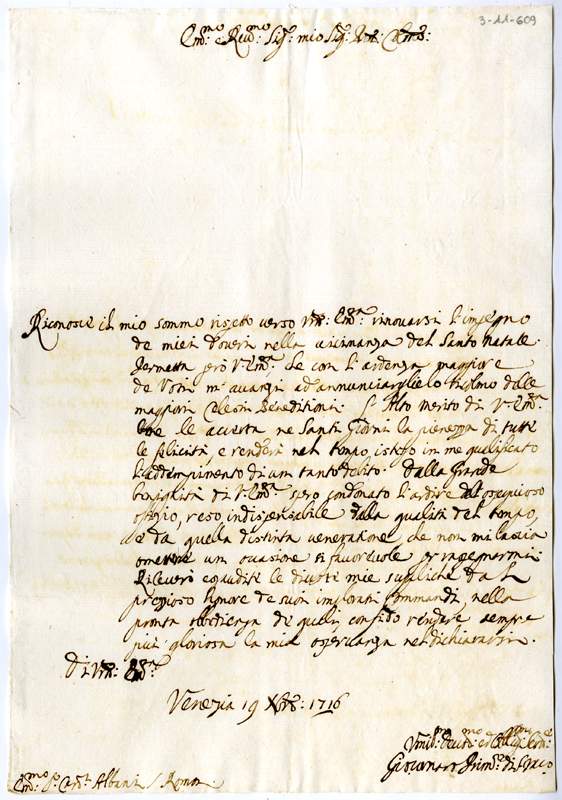 3-11-609
Em.mo e Reu.mo Sig.r mio Sig.r
Riconosce il mio sommo rispetto verso Vra: Em.za rinouarsi l'impegno
de miei doueri nella uicinanza del Santo Natale.
Permetta però V. Em.za, che con l'ardenza maggiore
de Voti m'auanzi ad annunciarglielo colmo delle
maggiori Celesti Benedittioni. L'Alto merito di V. Em.za
le accerta ne Santi Giorni la pienezza di tutte
le felicità, e renderà nel tempo istesso in me qualificato
l'addempimento di un tanto debito. Dalla Grande
benignità di V. Em.za spero condonato l'ardire del ossequioso
officio, reso indispensabile dalla qualità del tempo,
e da quella distinta ueneratione, che non mi lascia
omettere un occasione sì fauoreuole
Rileuerò esaudite le diuote mie suppliche dal
prezioso honore de suoi implorati commandi, nella
pronta obedienza de quali confido rendere sempre
più gloriosa la mia osseruanza nel dichiararmi.
Di Vra: Em.za
Venezia 19 Xbre: 1716
Vmil.mo Deu.mo et Oblig.mo
Giovanni
Em.mo S.r Card.l Albani / Roma